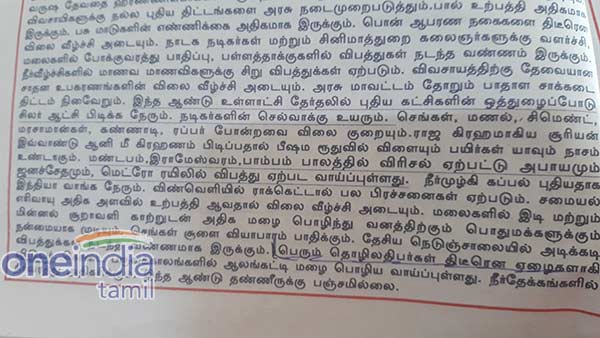 வருஷ தேவதை
விவசாயிகளுக்கு நல்ல புதிய திட்டங்களை அரசு நடைமுறைபடுத்தும்.பால் உற்பத்தி அதிகமாக
இருக்கும். பசு மாடுகளின் எண்ணிக்கை அதிகமாக இருக்கும். பொன் ஆபரண நகைகளை திடீரென
விலை வீழ்ச்சி அடையும். நாடக நடிகர்கள் மற்றும் சினிமாத்துறை கலைஞர்களுக்கு வளர்ச்சி,
மலைகளில் போக்குவரத்து பாதிப்பு, பள்ளத்தாக்குகளில் விபத்துகள் நடந்த வண்ணம் இருக்கும்.
நீர்வீழ்ச்சிகளில் மாணவ மாணவிகளுக்கு சிறு விபத்துக்கள் ஏற்படும். விவசாயத்திற்கு தேவையான
சாதன உபகரணங்களின் விலை வீழ்ச்சி அடையும். அரசு மாவட்டம் தோறும் பாதாள சாக்கடை
திட்டம் நிவேறும். இந்த ஆண்டு உள்ளாட்சி தேர்தலில் புதிய கட்சிகளின் ஒத்துழைப்போடு
சிலர் ஆட்சி பிடிக்க நேரும். நடிகர்களின் செல்வாக்கு உயரும். செங்கள், மணல், சிமெண்ட்,
மரசாமான்கள், கண்ணாடி, ரப்பர் போன்றவை விலை குறையும்.ராஜ கிரஹமாகிய சூரியன்
இவ்வாண்டு ஆனி மீ கிரஹணம் பிடிப்பதால் பீஷ்ம ருதுவில் விளையும் பயிர்கள் யாவும் நாசம்
உண்டாகும். மண்டபம்,இராமேஸ்வரம்,பாம்பம் பாலத்தில் விரிசல் ஏற்பட்டு அபாயமும்
ஜனச்சேதமும், மெட்ரோ ரயிலில் விபத்து ஏற்பட வாய்ப்புள்ளது. நீர்முழ்கி கப்பல் புதியதாக
இந்தியா வாங்க நேரும். விண்வெளியில் ராக்கெட்டால் பல பிரச்சனைகள் ஏற்படும். சமையல்
எரிவாயு அதிக அளவில் உற்பத்தி ஆவதால் விலை வீழ்ச்சி அடையும். மலைகளில் இடி மற்றும்
மின்னல் சூறாவளி காற்றுடன் அதிக மழை பொழிந்து வனத்திற்கும் பொதுமக்களுக்கும்
நன்மையாக செங்கள் சூளை வியாபாரம் பாதிக்கும். தேசிய நெடுஞ்சாலையில் அடிக்கடி
விபத்துக்கள் வண்ணமாக இருக்கும். பெரும் தொழிலதிபர்கள் திடீரென ஏழைகளாகி
ஆலங்கட்டி மழை பொழிய வாய்ப்புள்ளது. நீர்தேக்கங்களில்
ஆண்டு தண்ணீருக்கு பஞ்சமில்லை.
oneindia
tamil